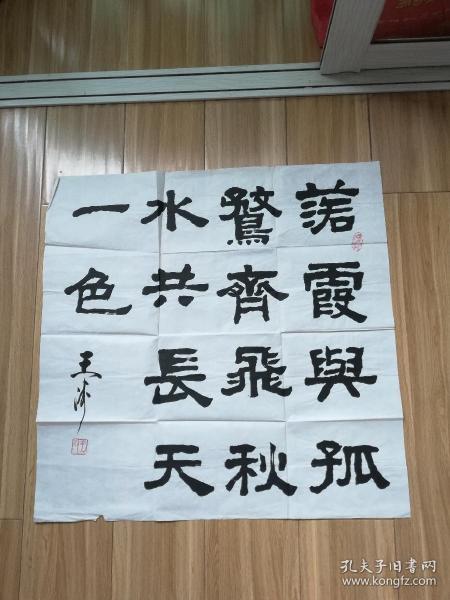 諾霞與孤
鶩齊飛秋
水共長天
一色
王
孔夫子旧書网
www.kongfz.com